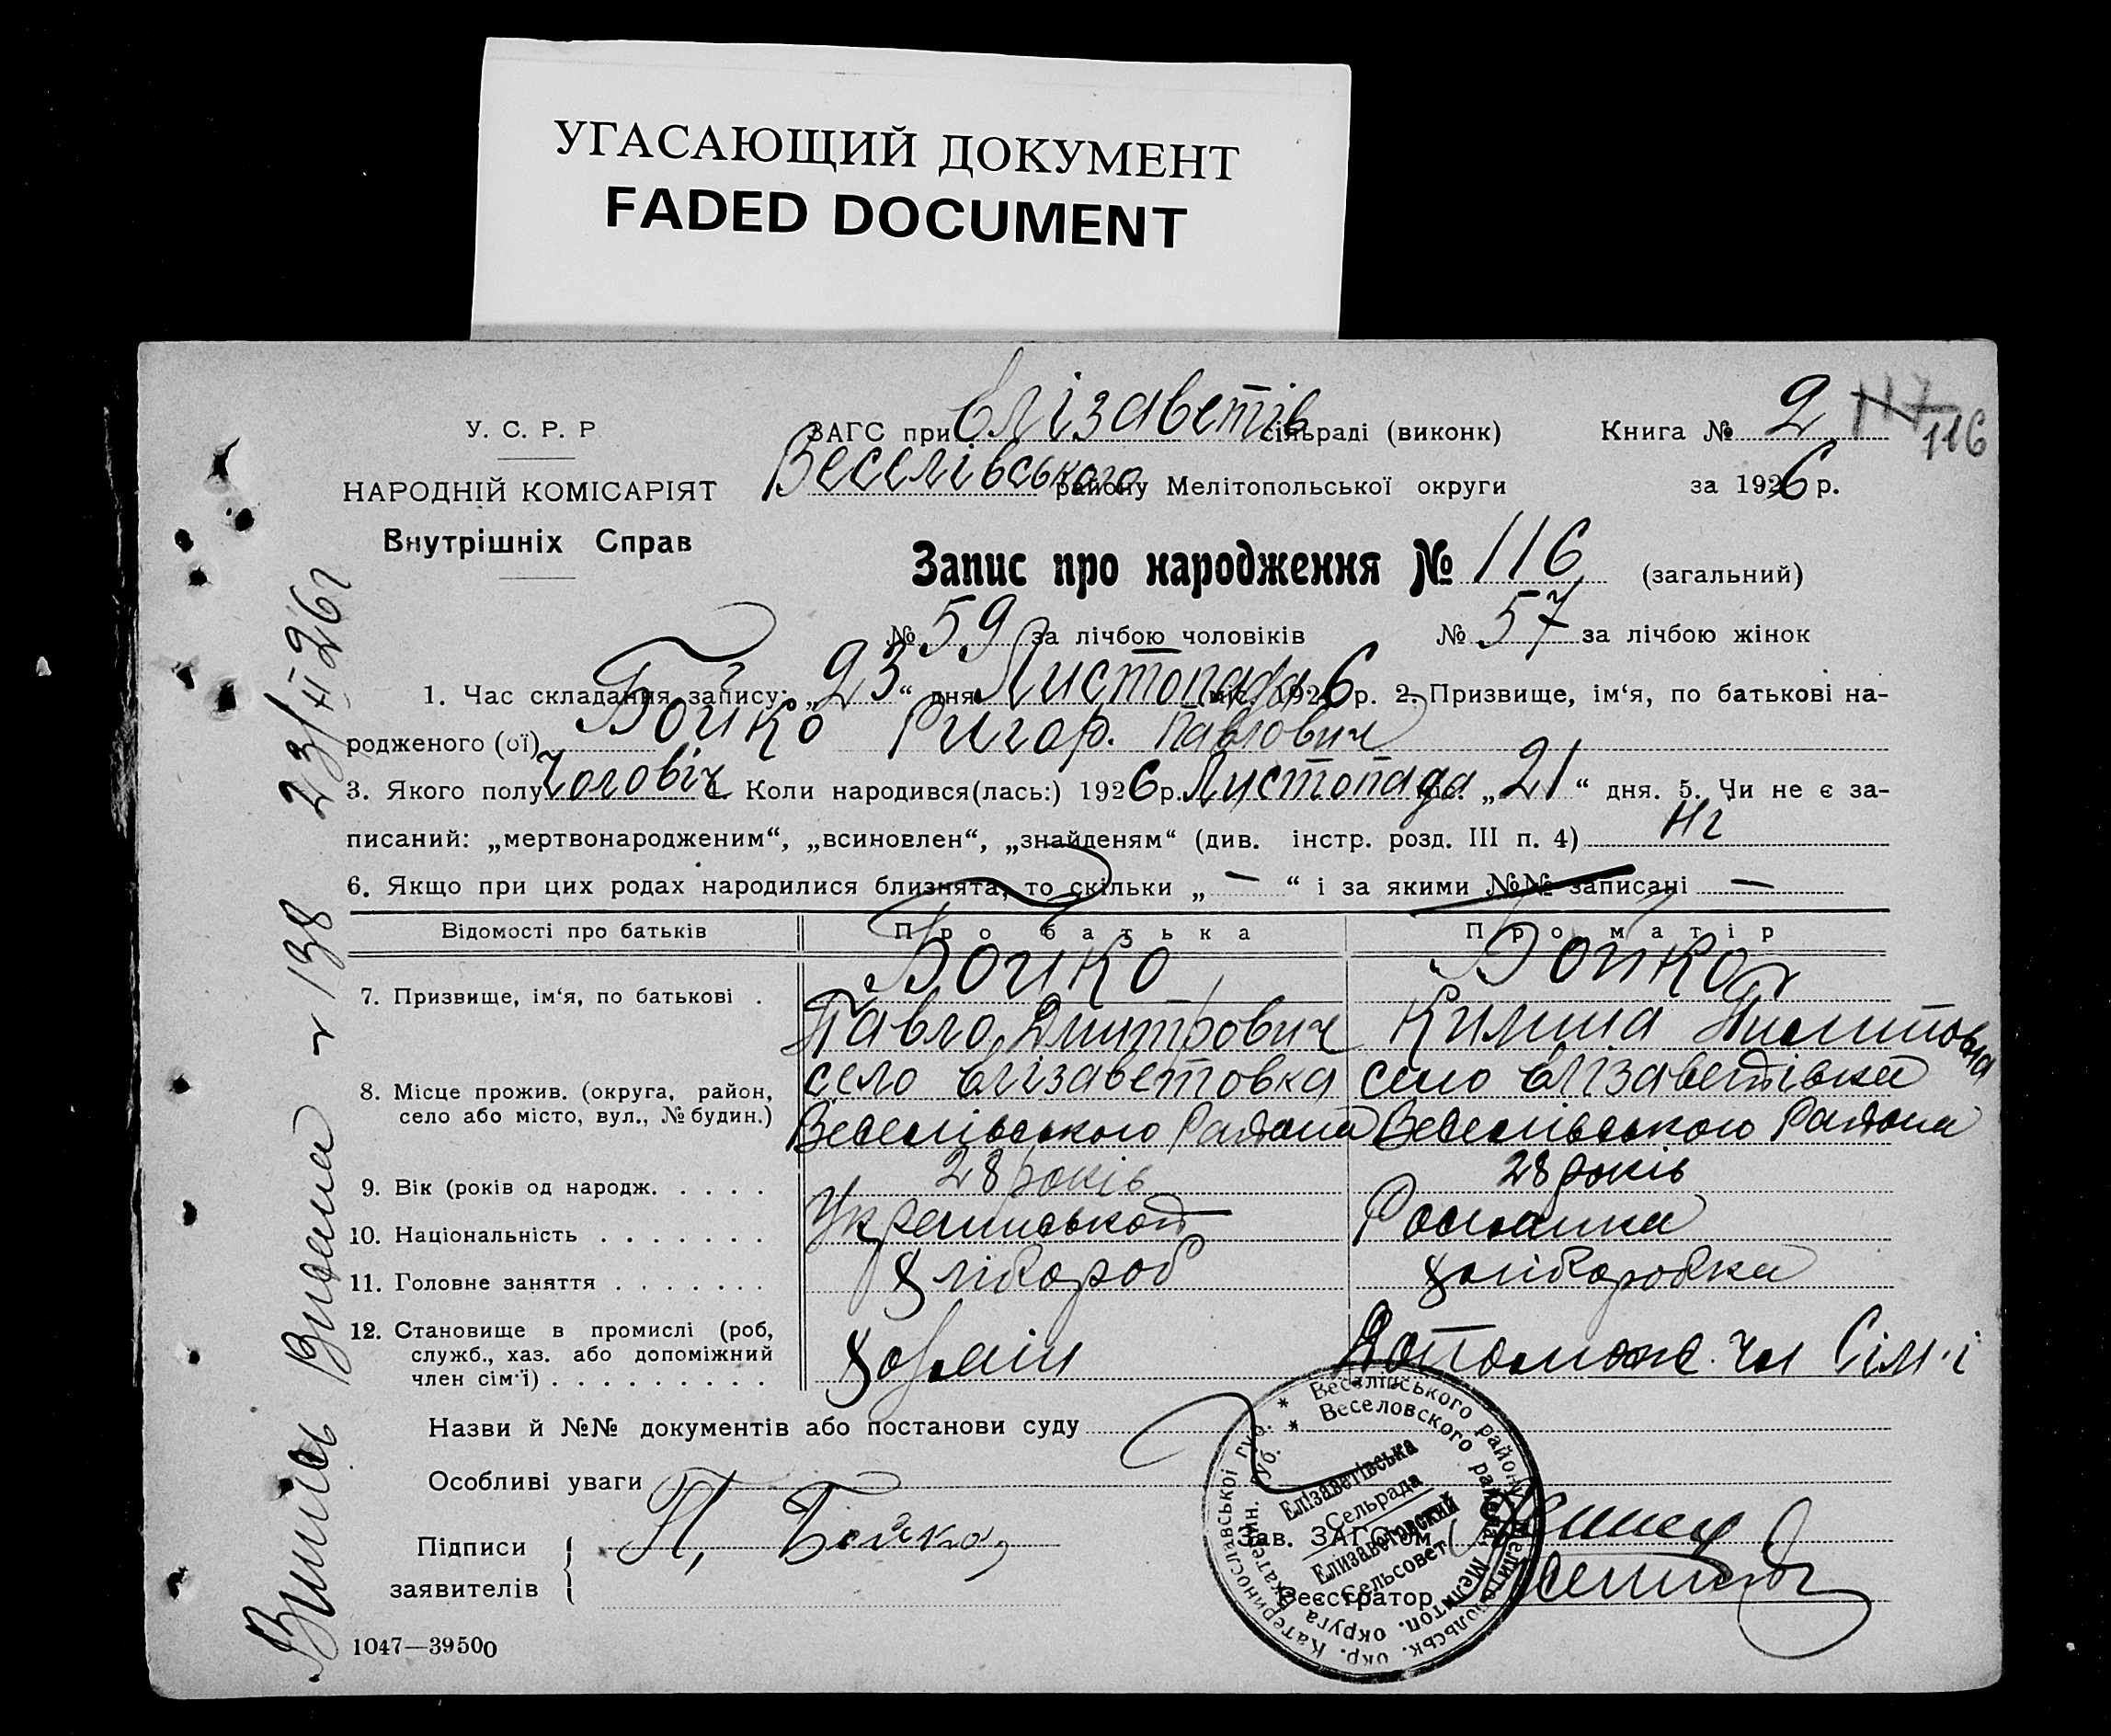 УГАСАЮЩИЙ ДОКУМЕНТ
FADED DOCUMENT
У. С. Р. Р
НАРОДНІЙ КОМІСАРІЯТ
Внутрішніх Справ
ЗАГС при Єлізаветів сільраді (виконк)
Веселівського району Мелітопольської округи
Книга № 2 117 116
за 1926 р.
Запис про народження № 116 (загальний)
№ 59 за лічбою чоловіків № 57 за лічбою жінок
1. Час складання запису: „23“ дня Листопада міс. 1926 р. 2. Призвище, ім‘я, по батькові на-
родженого (ої) Бойко Григор. Павлович
3. Якого полу Чоловіч 4. Коли народився(лась:) 1926 р. Листопада „21“ дня. 5. Чи не є за-
писаний: „мертвонародженим“, „всиновлен“, „знайденям“ (див. інстр. розд. III п. 4) Ні
6. Якщо при цих родах народилися близнята, то скільки „—“ і за якими №№ записані —
Відомості про батьків Про батька Про матір
7. Призвище, ім‘я, по батькові . Бойко Бойко
Павло Дмитрович
8. Місце прожив. (округа, район, село або місто, вул., № будин.) село Єлізаветовка село Єлізаветівка
Веселівського Района Веселівського Района
9. Вік (років од народж. . . . . 28 років 28 років
10. Національність . . . . . . .
11. Головне заняття . . . . . . . Хлібороб Хліборобка
12. Становище в промислі (роб, служб., хаз. або допоміжний член сім‘ї) . . . . . . . . . Хозяін Допомож. чл Сім'ї
Назви й №№ документів або постанови суду
Особливі уваги
Підписи заявителів П. Бойко
Зав. ЗАГСом
Реєстратор
1047—39500
Випись Видана 138 23/XI 26 г
* Веселівського району Мелітопольськ. окр. Катеринославської губ.
* Веселовского района Мелитоп. округа Екатерин. губ.
Елізаветівська
Сельрада
Елизаветовский
Сельсовет